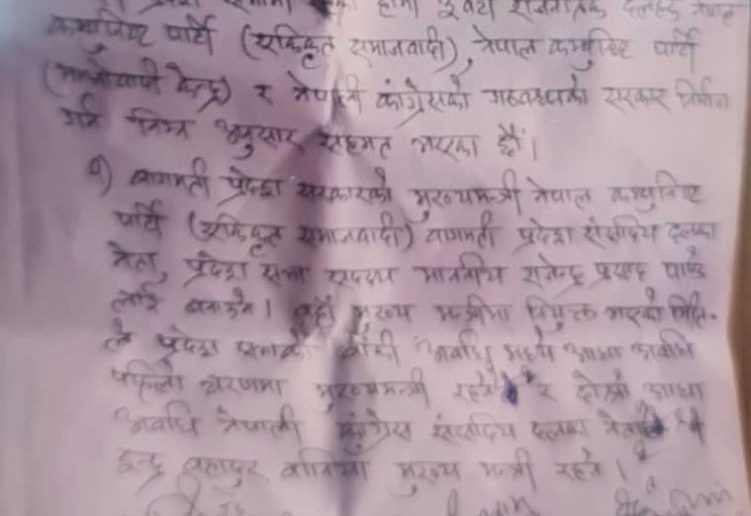 प्रदेश सभामा हामी तीनवटा राजनीतिक दलहरु नेपाल
कम्युनिष्ट पार्टी (एकिकृत समाजवादी), नेपाल कम्युनिष्ट पार्टी
(माओवादी केन्द्र) र नेपाली कांग्रेसको गठवन्धनको सरकार निर्माण
गर्न निम्न अनुसार सहमत भएका छौं।
१) बागमती प्रदेश सरकारको मुख्यमन्त्री नेपाल कम्युनिष्ट
पार्टी (एकिकृत समाजवादी) वागमती प्रदेश संसदिय दलका
नेता, प्रदेश सभा सदस्य माननीय राजेन्द्र प्रसाद पाण्डे
लाई बनाउने। वहाँ मुख्य मन्त्रीमा नियुक्त भएको मिति-
ले प्रदेश सभाको बाँकी अवधि मध्ये आधा अवधि
पहिलो चरणमा मुख्यमन्त्री रहने र दोस्रो आधा
अवधि नेपाली कांग्रेस संसदिय दलका नेता
इन्द्र बहादुर बानियाँ मुख्य मन्त्री रहने।